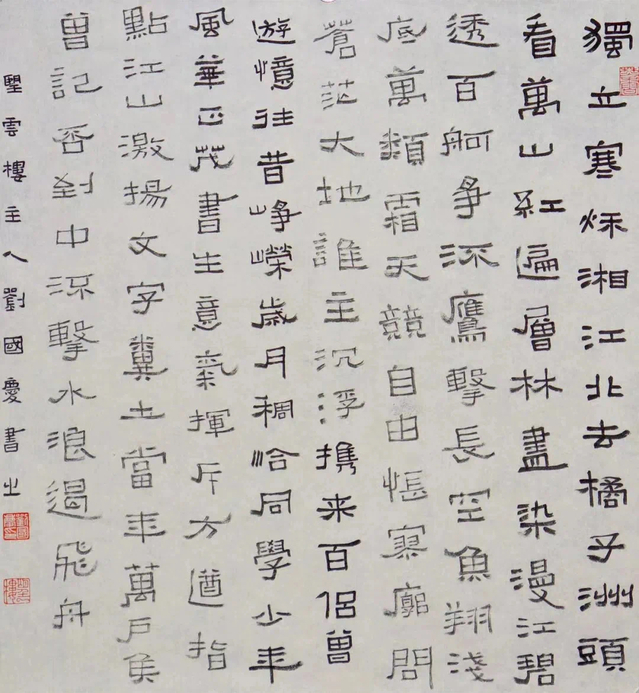 獨立寒秋湘江北去橘子洲頭
看萬山紅遍層林盡染漫江碧
透百舸爭流鷹擊長空魚翔淺
底萬類霜天競自由悵寥廓問
蒼茫大地誰主沉浮携来百侶曾
遊憶往昔崢嶸歲月稠恰同學少年
風華正茂書生意氣揮斥方遒指
點江山激揚文字糞土當年萬戶矦
曾記否到中流擊水浪遏飛舟
雲樓主人劉國慶書之